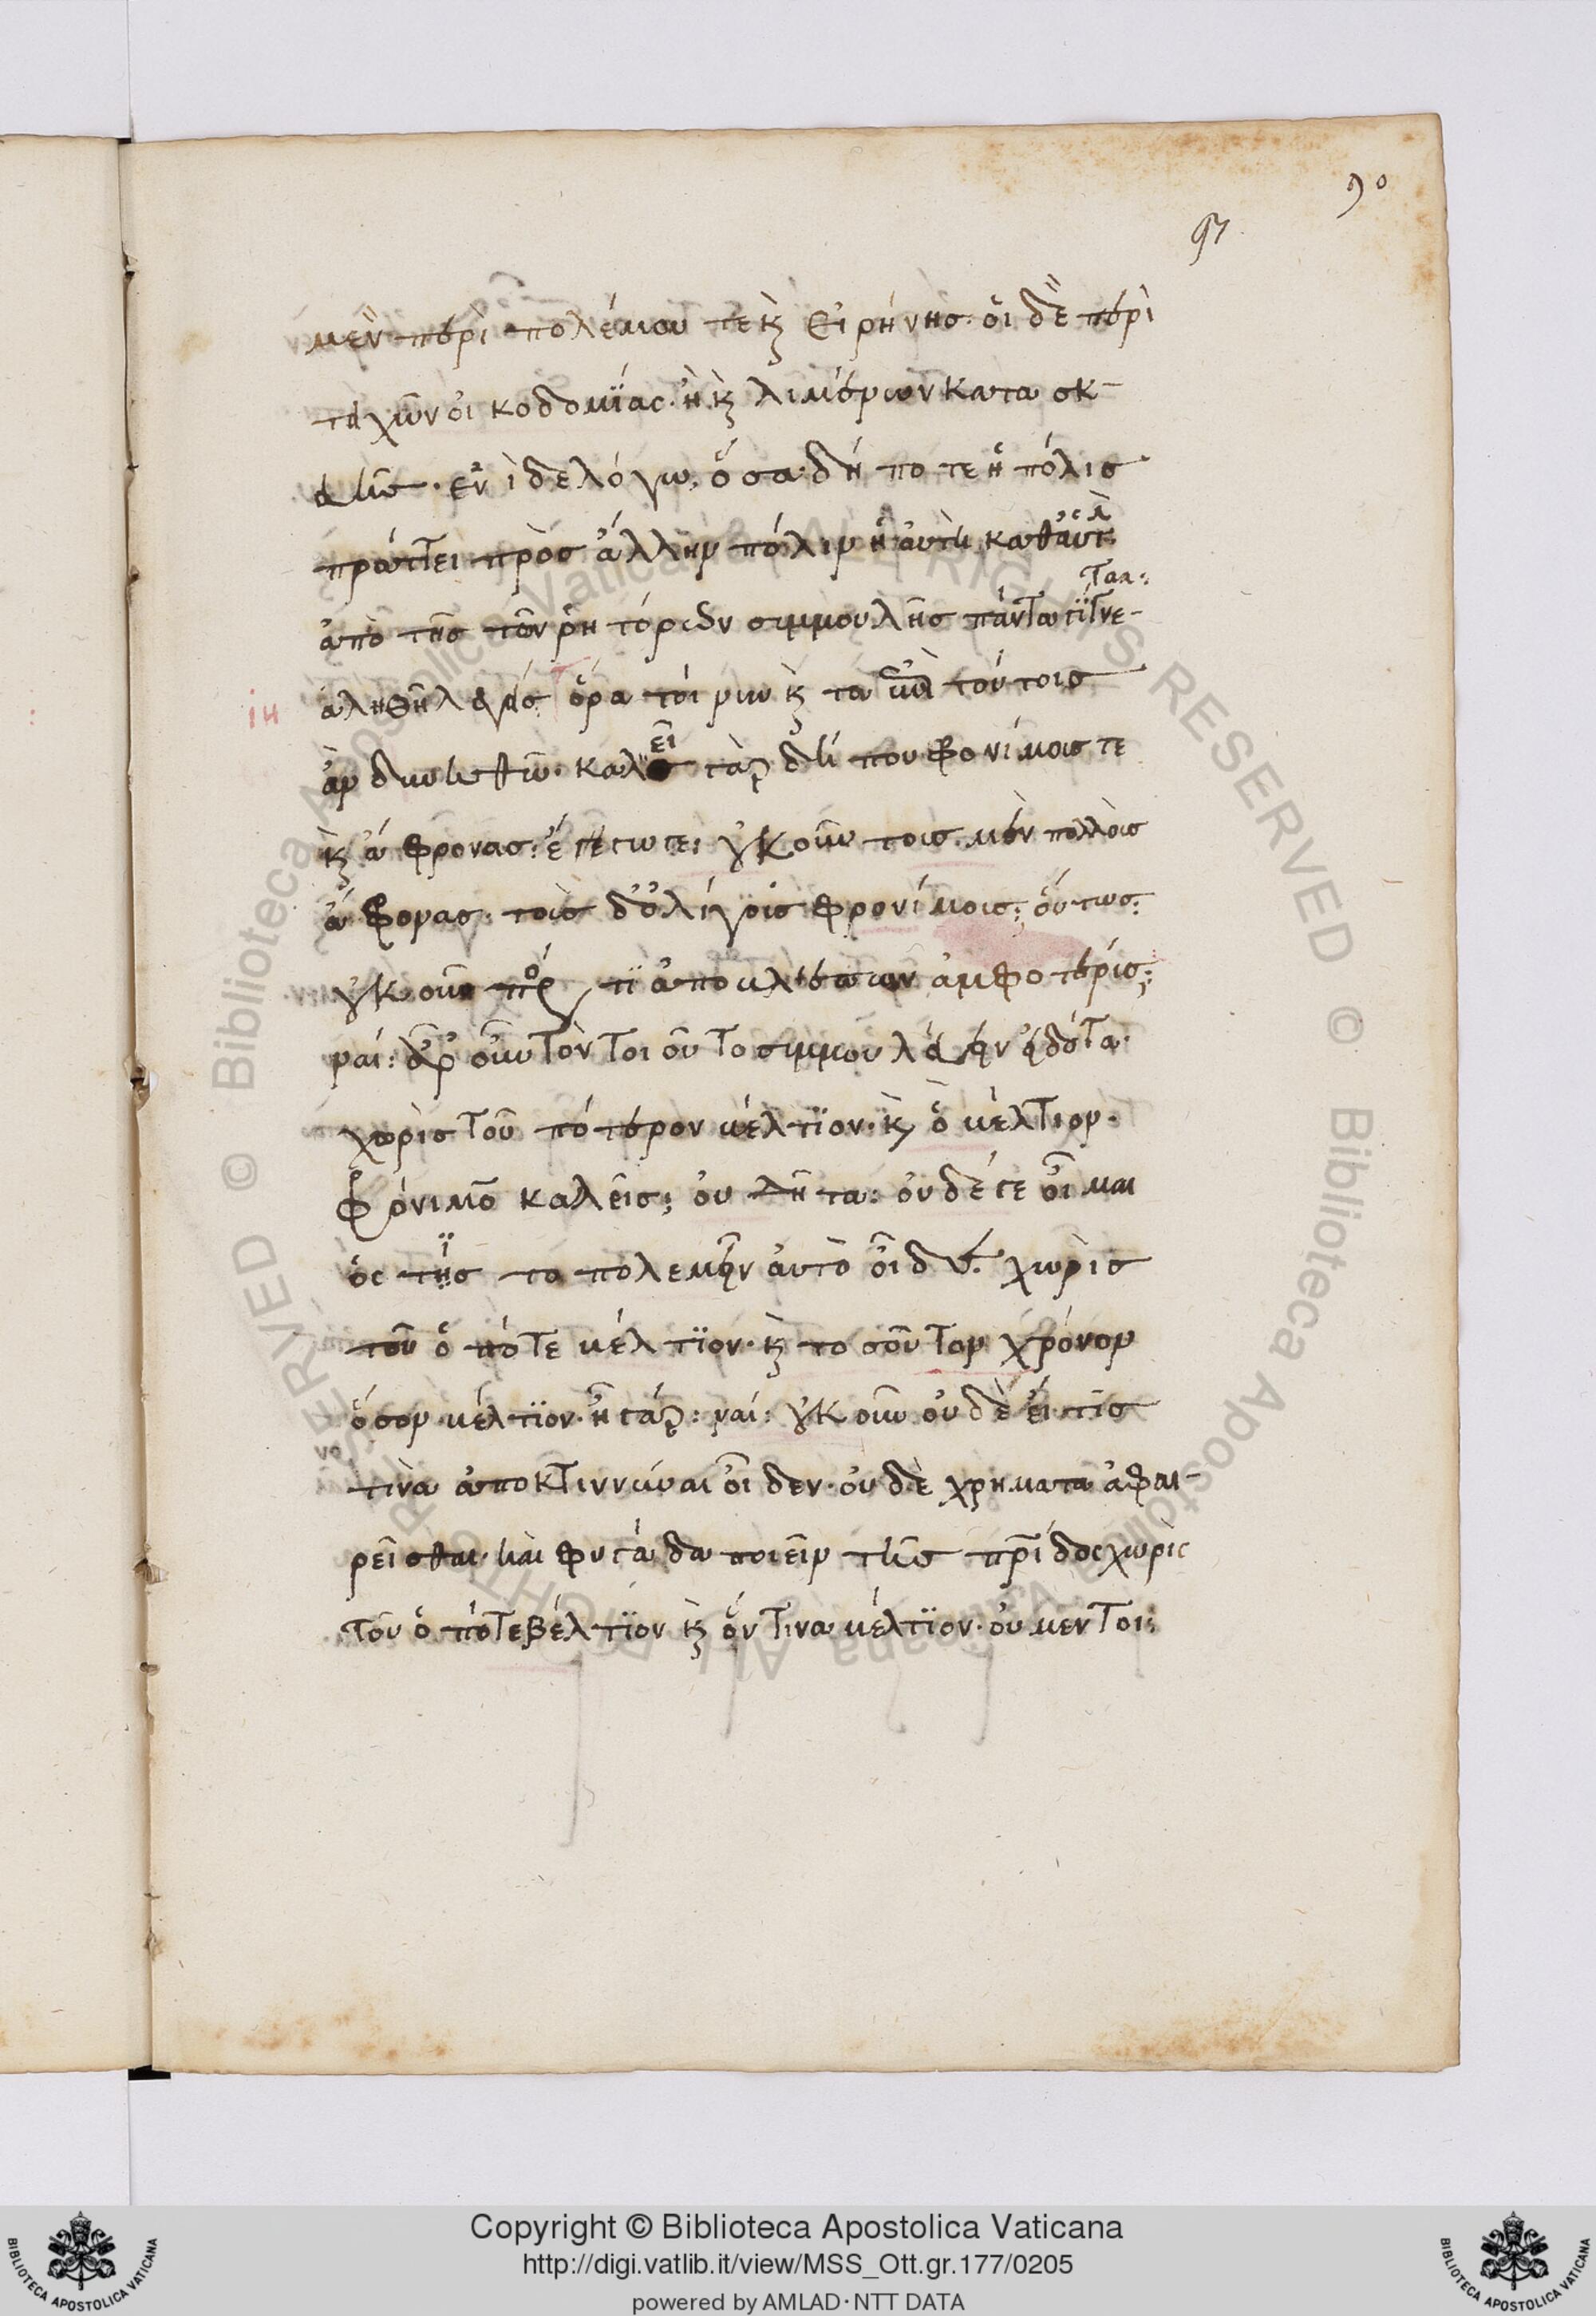 90
97
μὲν περὶ πολέμου τε κ̀ εἰρήνησ· οἱ δὲ περὶ
τειχῶν οἰκοδομΐας· ἢ κ̀ λιμένων κατασκ-
ευῆσ· ἑνὶ δὲ λόγω, ὅσα· δή ποτε ἡ πόλισ
πράττει πρὸσ ἄλλην πόλιν ἢ αὐτὴ καθ᾽αὑτ
ἀπὸ τῆσ τῶν ῥητόρων συμβουλῆσ πάντα γΐγνε-
ται:
ἀληθῆ λέγεισ· ὅρα τοίνυν κ̀ τὰ ἐπὶ τούτοισ
ιη
ἂν δυνηθῶ· καλεῖσ γὰρ δή που φρονίμουσ τε
κ̀ ἄφρονασ: ἔγωγε: οὐκοῦν τοὺσ μὲν πολλοὺσ
ἄφρονας· τοὺσ δ᾽ὀλίγουσ φρονίμουσ; οὕτωσ:
οὐκοῦν πρὸσ τΐ ἀποβλέπων ἀμφοτέρουσ;
ναί: ἆρ᾽ οὖν τὸν τοιοῦτο συμβουλεύειν εἰδότα·
χωρὶσ τοῦ πότερον βέλτϊον· κ̀ ὅ βέλτιον·
φρόνιμον καλεῖσ; οὐ δῆτα: οὐδέ γε οἶμαι
ὅς τϊσ τὸ πολεμεῖν αὐτὸ οἶδεν· χωρὶσ
τοῦ ὁπότε βέλτϊον· κ̀ τοσοῦτον χρόνον
ὅσον βέλτϊον· ἦ γάρ: ναί: οὐκοῦν οὐδὲ εἴ τισ
τινὰ ἀποκτιννύναι οἶδεν· οὐδὲ χρήματα ἀφαι-
ρεῖσθαι· καὶ φυγάδα ποιεῖν τῆσ πρίδος χωρὶς
τοῦ ὁπότε βέλτϊον κ̀ ὅντινα βέλτϊον· οὐ μέντοι:
Copyright © Biblioteca Apostolica Vaticana
http://digi.vatlib.it/view/MSS_Ott.gr.177/0205
powered by AMLAD·NTT DATA